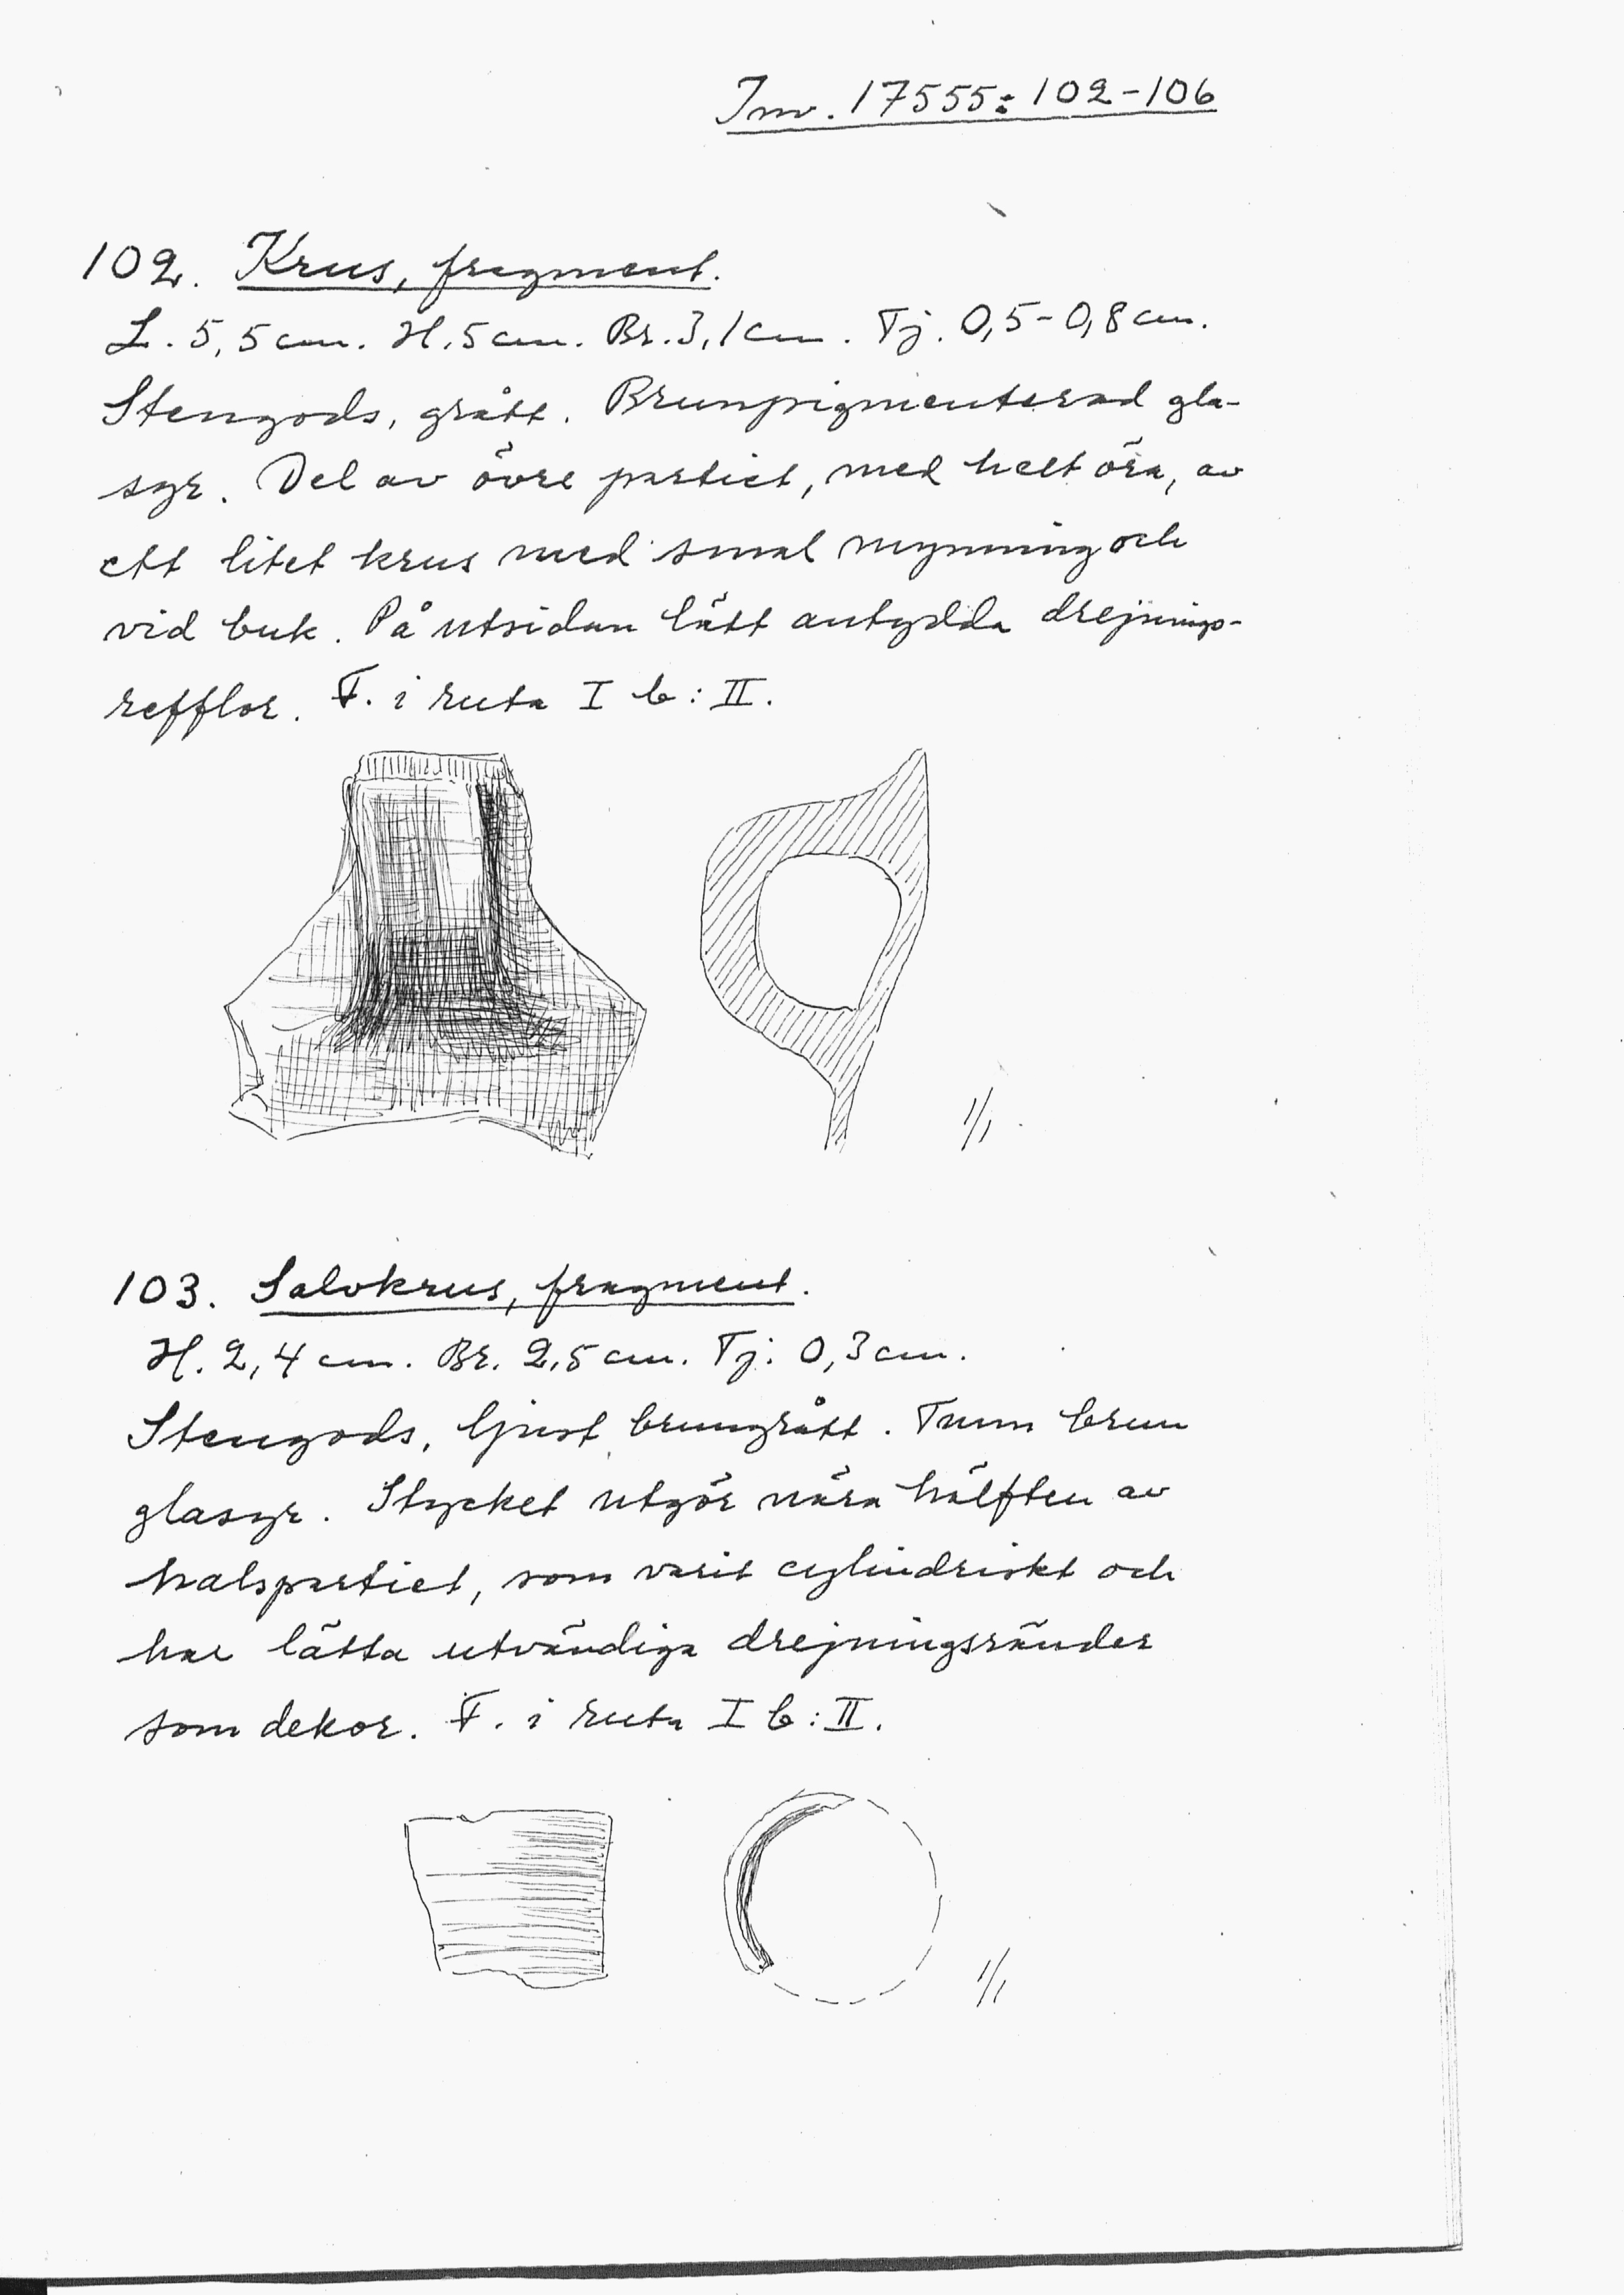 Inv. 17555:102-106
102. Krus, fragment.
L. 5,5 cm. H. 5 cm. Br. 3,1 cm. Tj. 0,5-0,8 cm.
Stengods, grått. Brunpigmenterad gla-
syr. Del av övre partiet, med helt öra, av
ett litet krus med smal mynning och
vid buk. På utsidan lätt antydda drejnings-
refflor. F. i ruta I b:II.
1/1
103. Salvkrus, fragment.
H. 2,4 cm. Br. 2,5 cm. Tj. 0,3 cm.
Stengods, ljust brungrått. Tunn brun
glasyr. Stycket utgör nära hälften av
halspartiet, som varit cylindriskt och
har lätta utvändiga drejningsränder
som dekor. F. i ruta I b:II.
1/1